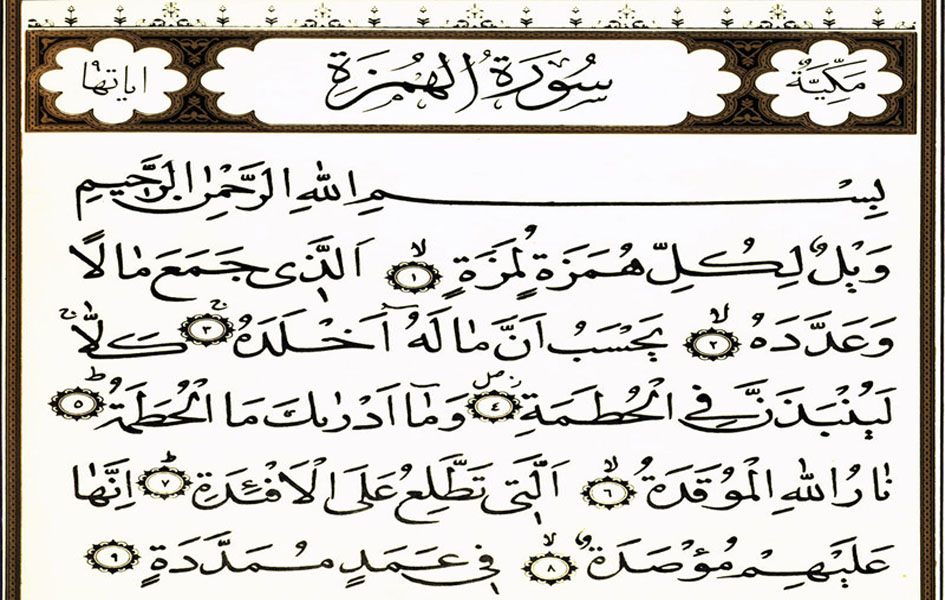 مَكِّيَّةٌ سُورَةُ الْهُمَزَةِ اياتها ٩
بِسْمِ اللهِ الرَّحْمٰنِ الرَّحِيمِ
وَيْلٌ لِكُلِّ هُمَزَةٍ لُمَزَةٍ ﴿١﴾ اَلَّذِى جَمَعَ مَالًا
وَعَدَّدَهُ ﴿٢﴾ يَحْسَبُ اَنَّ مَالَهُٓ اَخْلَدَهُ ﴿٣﴾ كَلَّا
لَيُنْبَذَنَّ فِي الْحُطَمَةِ ﴿٤﴾ وَمَٓا اَدْرٰيكَ مَا الْحُطَمَةُ ﴿٥﴾
نَارُ اللهِ الْمُوقَدَةُ ﴿٦﴾ اَلَّتِى تَطَّلِعُ عَلَى الْاَفْـِٔدَةِ ﴿٧﴾ اِنَّهَا
عَلَيْهِمْ مُؤْصَدَةٌ ﴿٨﴾ فِى عَمَدٍ مُمَدَّدَةٍ ﴿٩﴾